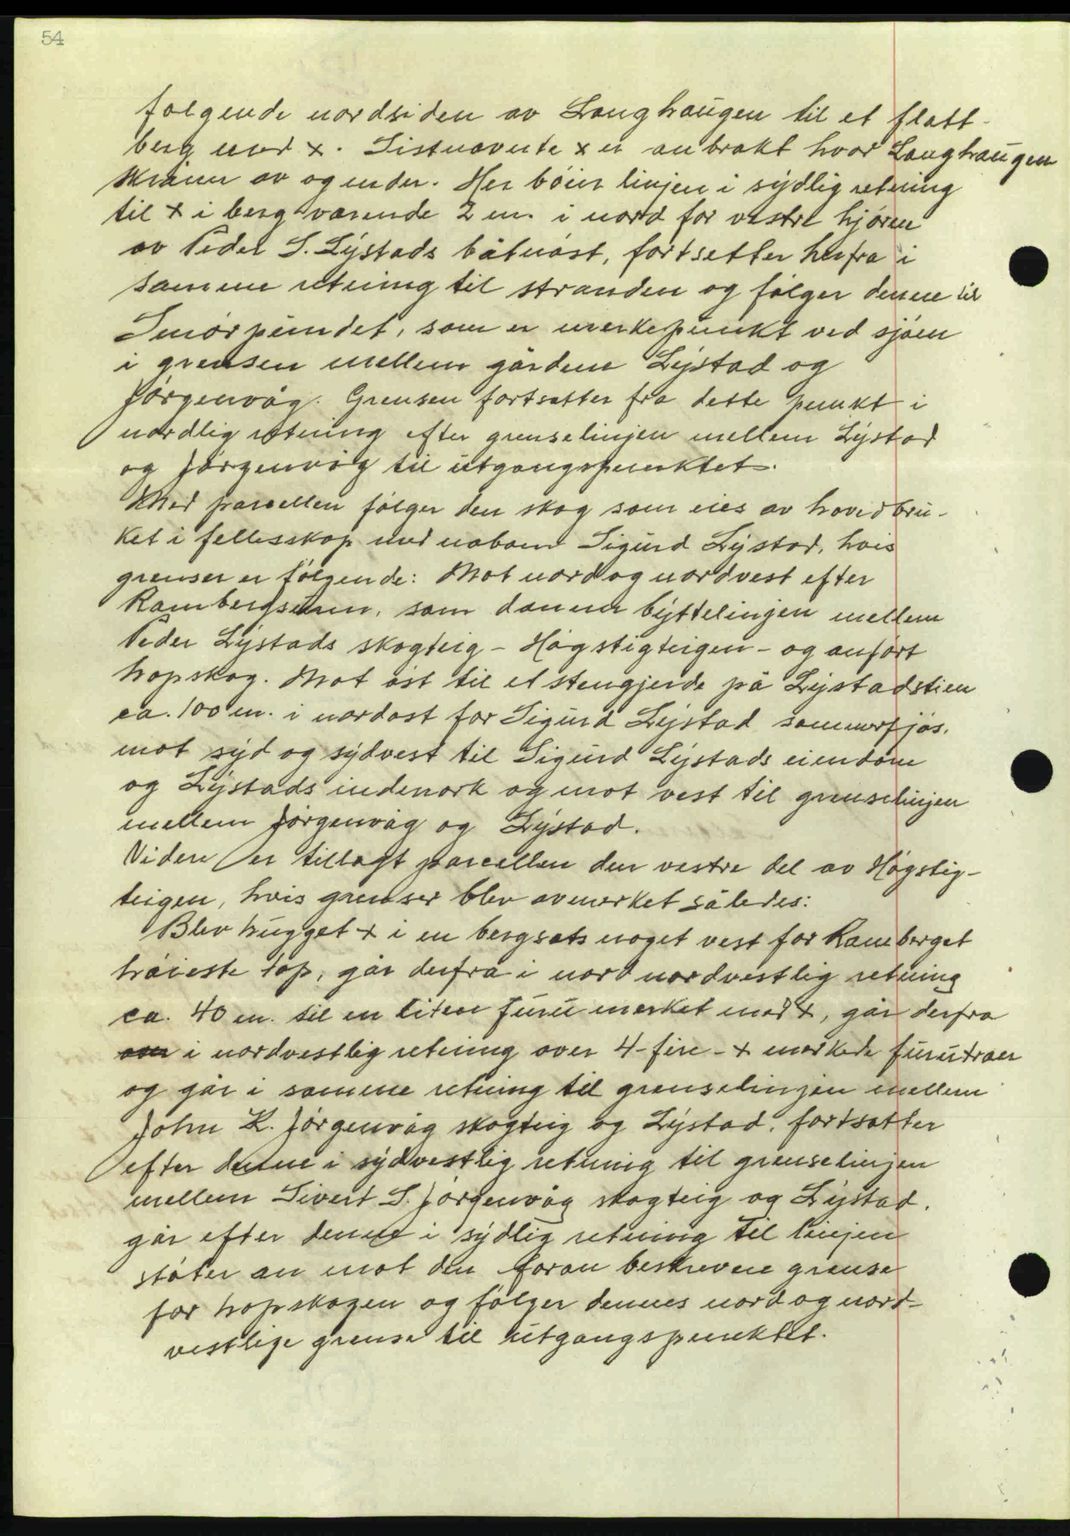 54
følgende nordsiden av Langhaugen til et flatt
berg med x. Sistnevnte x er anbrakt hvor Langhaugen
skråner av og ender. Her bøier linjen i sydlig retning
til x i berg værende 2 m. i nord for vestre hjørne
av Peder S. Lystads båtnøst, fortsetter herfra i
samme retning til stranden og følger denne til
Smørpundet, som er merkepunkt ved sjøen
i grensen mellem gårdene Lystad og
Jørgenvåg. Grensen fortsetter fra dette punkt i
nordlig retning efter grenselinjen mellem Lystad
og Jørgenvåg til utgangspunktet.
Med parcellen følger den skog som eies av hovedbru-
ket i fellesskap med naboen Sigurd Lystad, hvis
grenser er følgende: Mot nord og nordvest efter
Rambergsrinn, som danner byttelinjen mellem
Peder Lystads skogteig - Høgstigteigen - og anført
hopskog. Mot øst til et stengjerde på Lystadstien
ca. 100 m. i nordost for Sigurd Lystad sommerfjøs.
mot syd og sydvest til Sigurd Lystads eiendom
og Lystads indmark og mot vest til grenselinjen
mellem Jørgenvåg og Lystad.
Videre er tillagt parcellen den vestre del av Høgstig-
teigen, hvis grenser blev avmerket således:
Blev hugget x i en bergsats noget vest for Ramberget
høieste top, går derfra i nordnordvestlig retning
ca. 40 m. til en liten furu merket med x, går derfra
i nordvestlig retning over 4-fire- x merkede furutrær
og går i samme retning til grenselinjen mellem
John K. Jørgenvåg skogteig og Lystad, fortsetter
efter denne i sydvestlig retning til grenselinjen
mellem Sivert S. Jørgenvåg skogteig og Lystad.
går efter denne i sydlig retning til linjen
støter an mot den foran beskrevene grense
for hopskogen og følger dennes nord og nord-
vestlige grense til utgangspunktet.